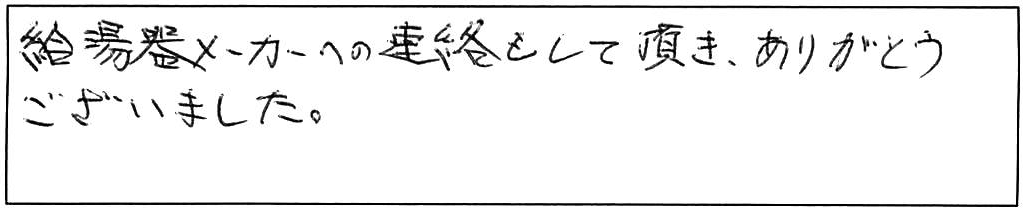 給湯器メーカーへの連絡をして頂き、ありがとう
ございました。